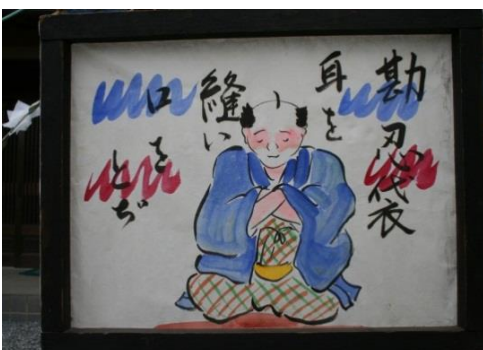 勘忍袋
耳を
縫い
口をとぢ